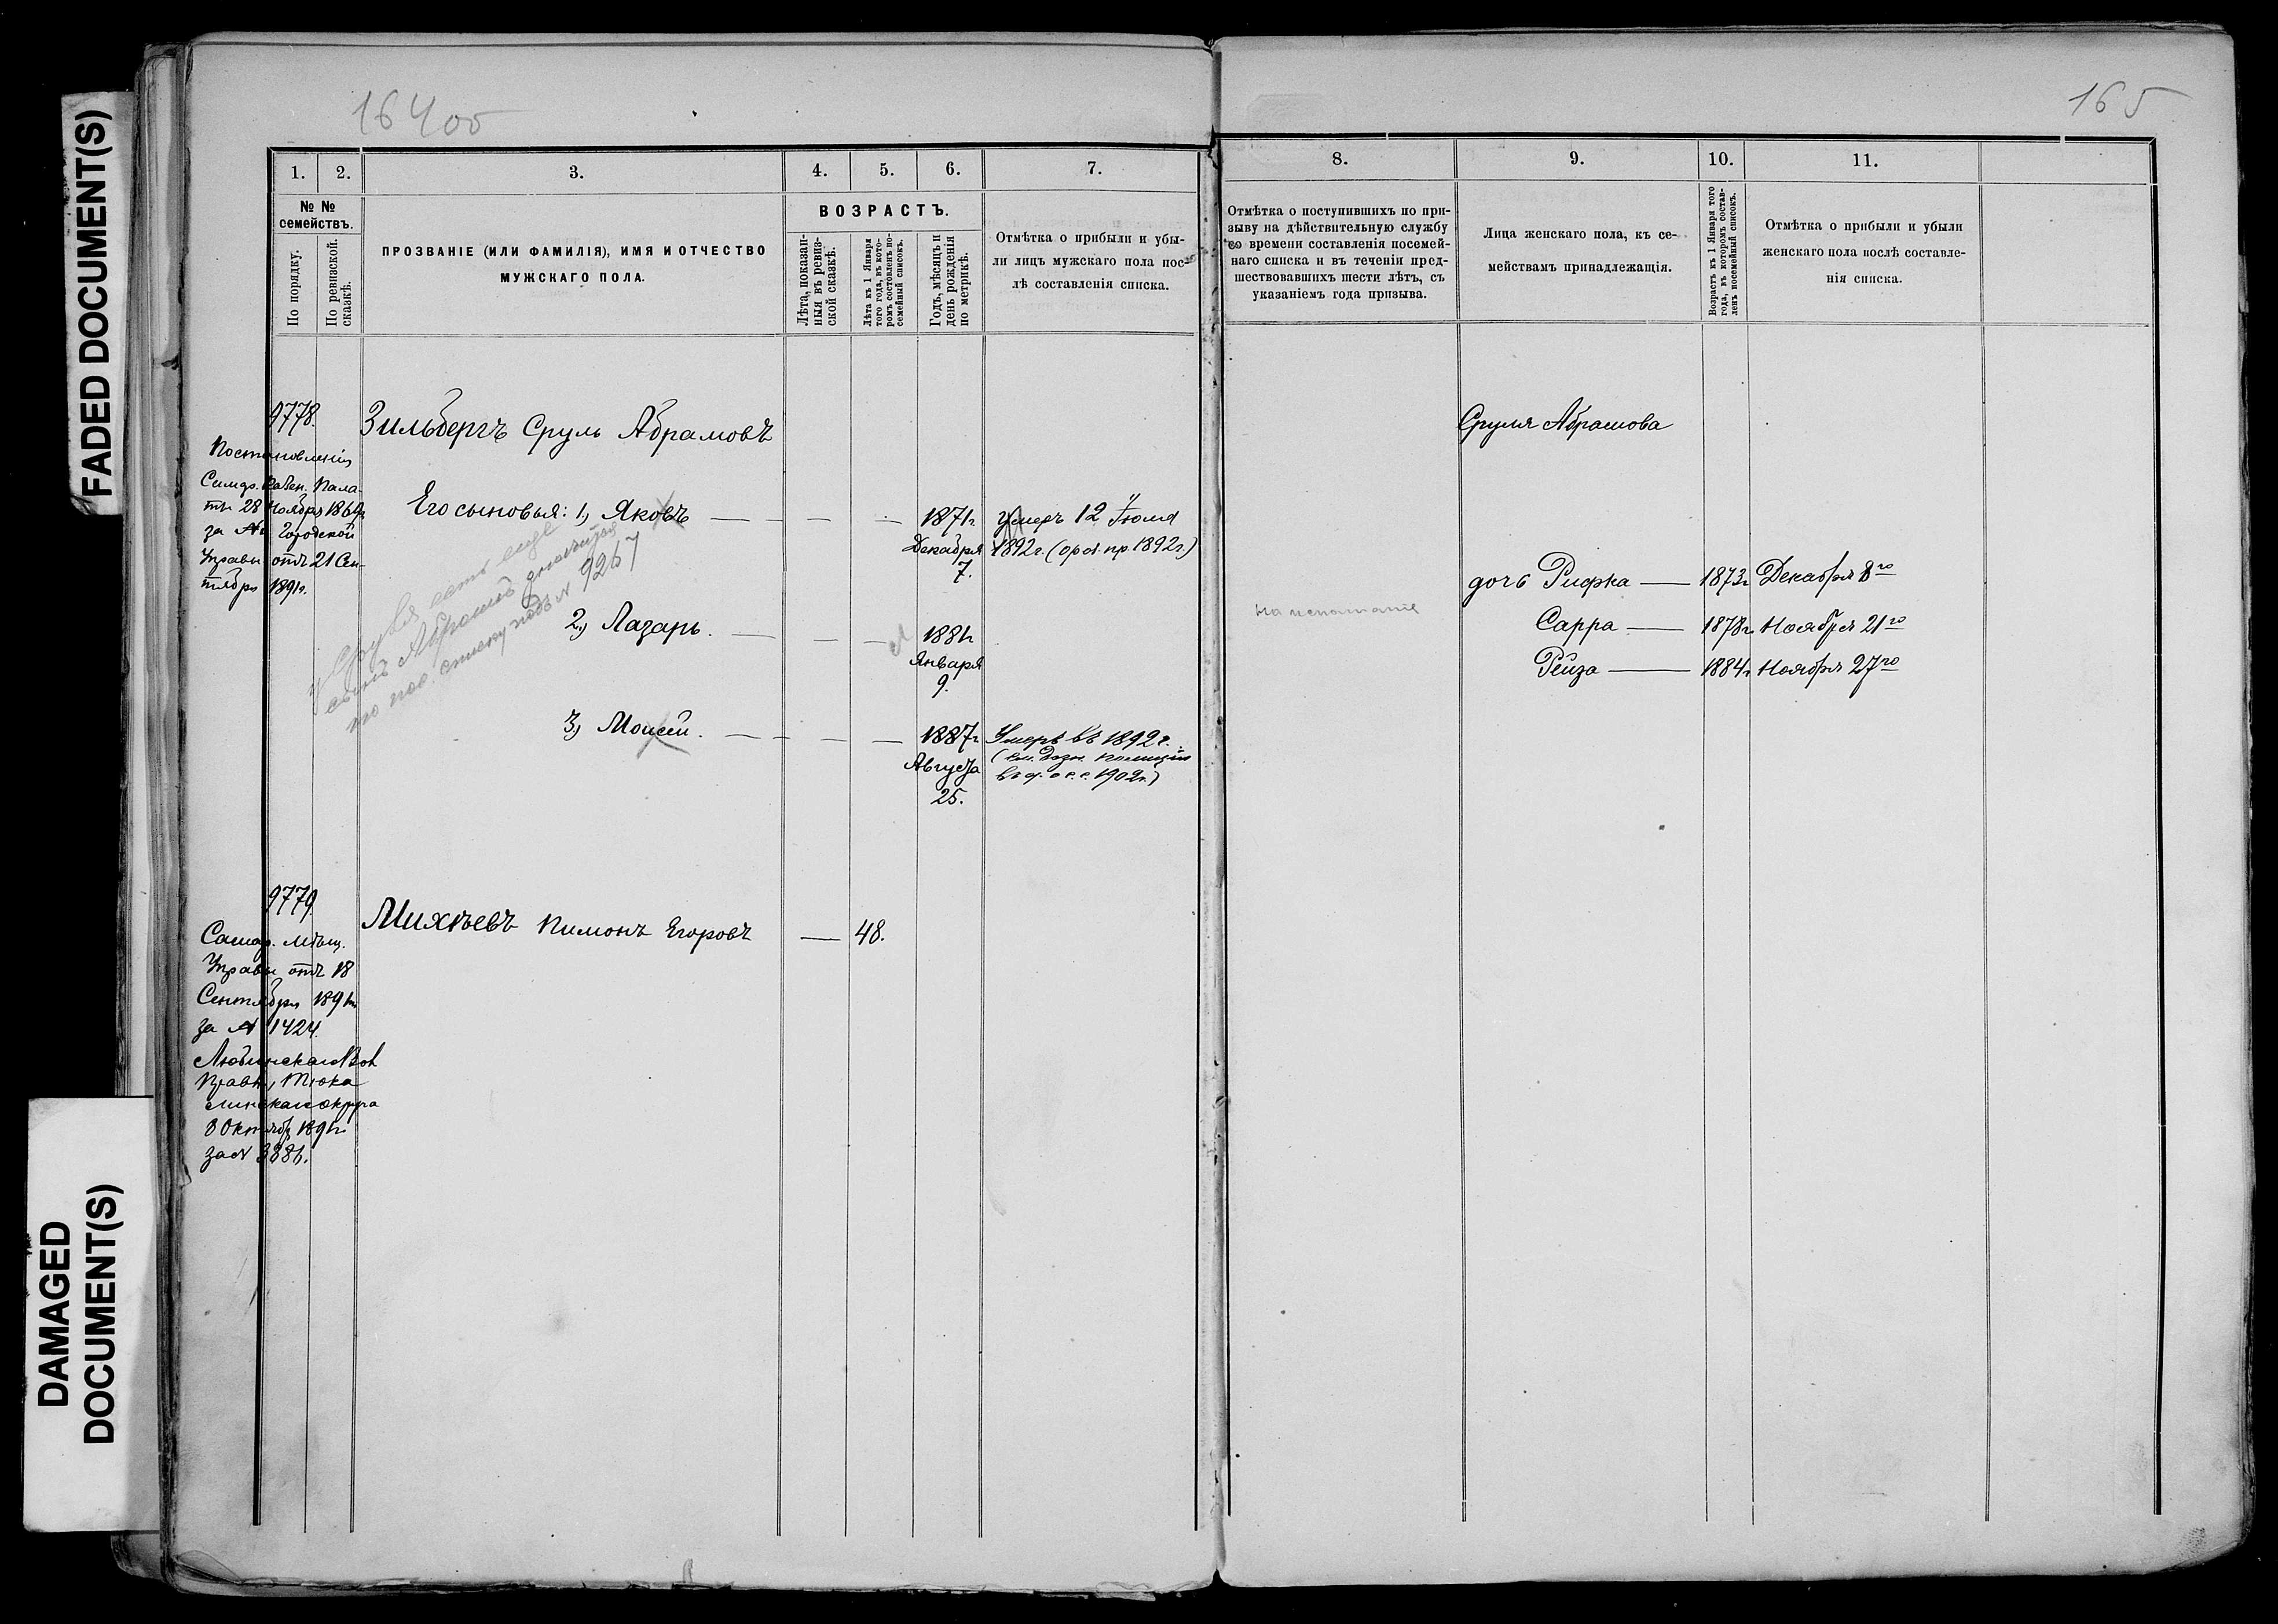 FADED DOCUMENT(S)
DAMAGED
DOCUMENT(S)
164 об
165
1. 2. 3. 4. 5. 6. 7.
№ №
семействъ.
По порядку.
По ревизской
сказкѣ.
ПРОЗВАНІЕ (ИЛИ ФАМИЛІЯ), ИМЯ И ОТЧЕСТВО
МУЖСКАГО ПОЛА.
ВОЗРАСТЪ.
Лѣта, показан-
ныя въ ревиз-
ской сказкѣ.
Лѣта къ 1 Января
того года, въ кото-
ромъ составленъ по-
семейный списокъ.
Годъ, мѣсяцъ и
день рожденія
по метрикѣ.
Отмѣтка о прибыли и убы-
ли лицъ мужскаго пола пос-
лѣ составленія списка.
8. 9. 10. 11.
Отмѣтка о поступившихъ по при-
зыву на дѣйствительную службу
во времени составленія посемей-
наго списка и въ теченіи пред-
шествовавшихъ шести лѣтъ, съ
указаніемъ года призыва.
Лица женскаго пола, къ се-
мействамъ принадлежащія.
Возрастъ къ 1 Января того
года, въ которомъ состав-
ленъ посемейный списокъ.
Отмѣтка о прибыли и убыли
женскаго пола послѣ составле-
нія списка.
9778.
Постановленія
Казен. Пала-
ты 28 Ноября
за № Городской
Управы отъ 21 Сен-
тября 1891г.
Зильбергъ Сруль Абрамовъ
Его сыновья: 1, Яковъ
1871г
Декабря
7.
умеръ 12 Іюля
1892г. (пр. 1892г.)
у Сруля есть еще
сынъ Абрамъ значится
по пос. списку подъ № 9267
2, Лазарь.
1881г
Января
9.
3, Моисей.
1887г
Августа
25.
Умеръ въ 1892г.
(см. дозн. полиціи
1902г.)
Сруля Абрамова
дочь Рифка 1873г Декабря 8го
Сарра 1878г. Ноября 21го
Рейза 1884г Ноября 27го
9779
Самар. мѣщ.
Управы отъ 18
Сентября 1891г.
за № 1424.
Любинскаго Вол
Правл, Тюка
линскаго округа
8 Октябр 1891г.
за № 3881.
Михѣевъ Пимонъ Егоровъ
48.